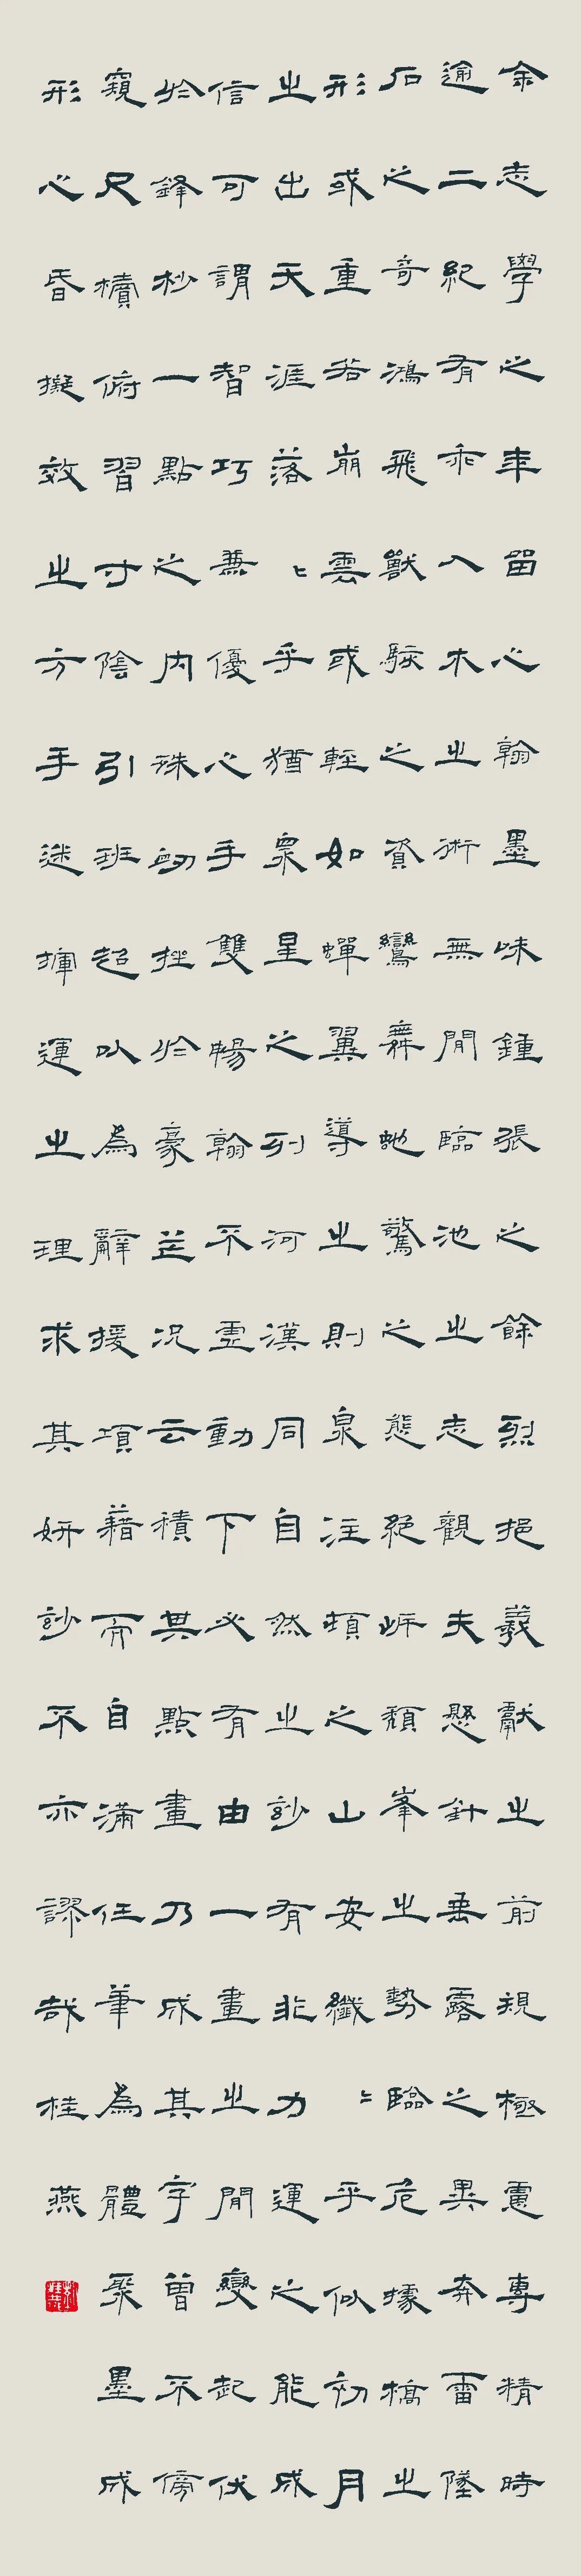 余志學之年留心翰墨味鍾張之餘烈挹羲獻之前規極慮專精時
逾二紀有乖入木之術無間臨池之志觀夫懸針垂露之異奔雷墜
石之奇鴻飛獸駭之資鸞舞虵驚之態絕岸頹峯之勢臨危據槁之
形或重若崩雲或輕如蟬翼導之則泉注頓之山安纖〻乎似初月
之出天涯落〻乎猶衆星之列河漢同自然之玅有非力運之能成
信可謂智巧兼優心手雙暢翰不虛動下必有由一畫之間變起伏
於鋒杪一點之內殊衂挫於豪芒況云積其點畫乃成其字曾不傍
窺尺櫝俯習寸陰引班超以為辭援項藉而自滿任筆為體聚墨成
形心昏擬效之方手迷揮運之理求其妍玅不亦謬哉桂燕